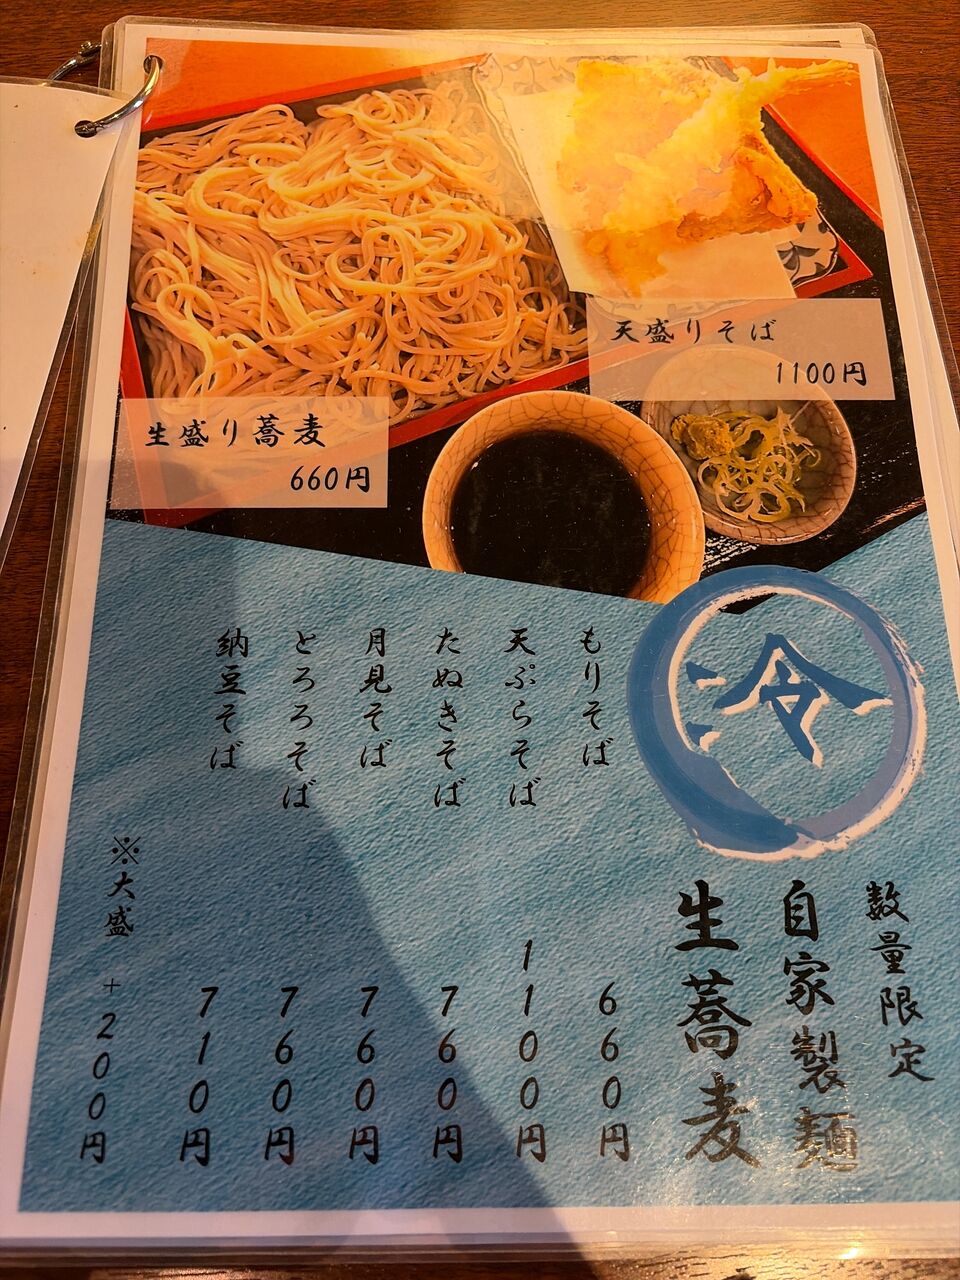 天盛りそば
1100円
生盛り蕎麦
660円
冷
数量限定
自家製麺
生蕎麦
もりそば 660円
天ぷらそば 1100円
たぬきそば 760円
月見そば 760円
とろろそば 760円
納豆そば 710円
※大盛 +200円